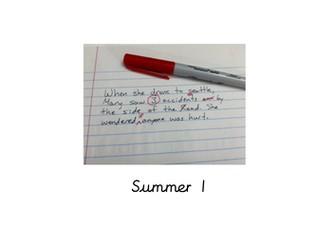 When she drove to seattle,
Mary saw 3 accidents by
the side of the road. She
wondered anyone was hurt.
Summer 1